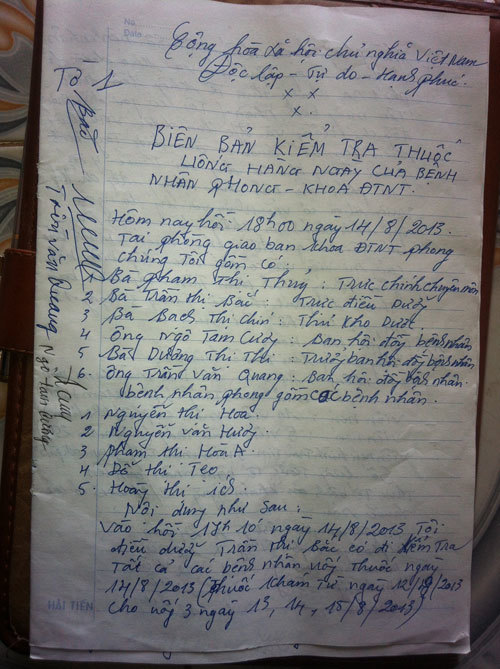 No.
Date
Cộng hòa xã hội chủ nghĩa Việt Nam
Độc lập - Tự do - Hạnh phúc
x x
x.
Tờ 1
BIÊN BẢN KIỂM TRA THUỐC
UỐNG HÀNG NGÀY CỦA BỆNH
NHÂN PHÒNG - KHOA ĐTNT.
Hôm nay hồi: 18h00 ngày 14/8/2013.
Tại phòng giao ban khoa ĐTNT phòng
chúng Tôi gồm có:
1 Bà Phạm Thị Thuý: Trực chính chuyên môn
2 Bà Trần thị Bắc: Trực điều dưỡng
3 Bà Bạch Thị Chín: Thủ kho Dược
4 Ông Ngô Tam Cường: Ban hội đồng bệnh nhân
5 Bà Dương Thị Thi: Trưởng ban hội đồng bệnh nhân
6. Ông Trần Văn Quang: Ban hội đồng bệnh nhân.
bệnh nhân phòng gồm các bệnh nhân.
1 Nguyễn thị Hoa.
2 Nguyễn văn Hường.
3 phạm thị Hoa A.
4 Đỗ thị Tẹo
5. Hoàng thị ích.
Nội dung như sau:
Vào hồi 17h10' ngày 14/8/2013 Tôi
điều dưỡng Trần thị Bắc có đi kiểm Tra
Tất cả các bệnh nhân uống thuốc ngày
14/8/2013 (Thuốc khám từ ngày 12/8/2013
cho uống 3 ngày 13, 14, 15/8/2013)
Bắc
Trần văn Quang
Ngô tam Cường
HẢI TIẾN